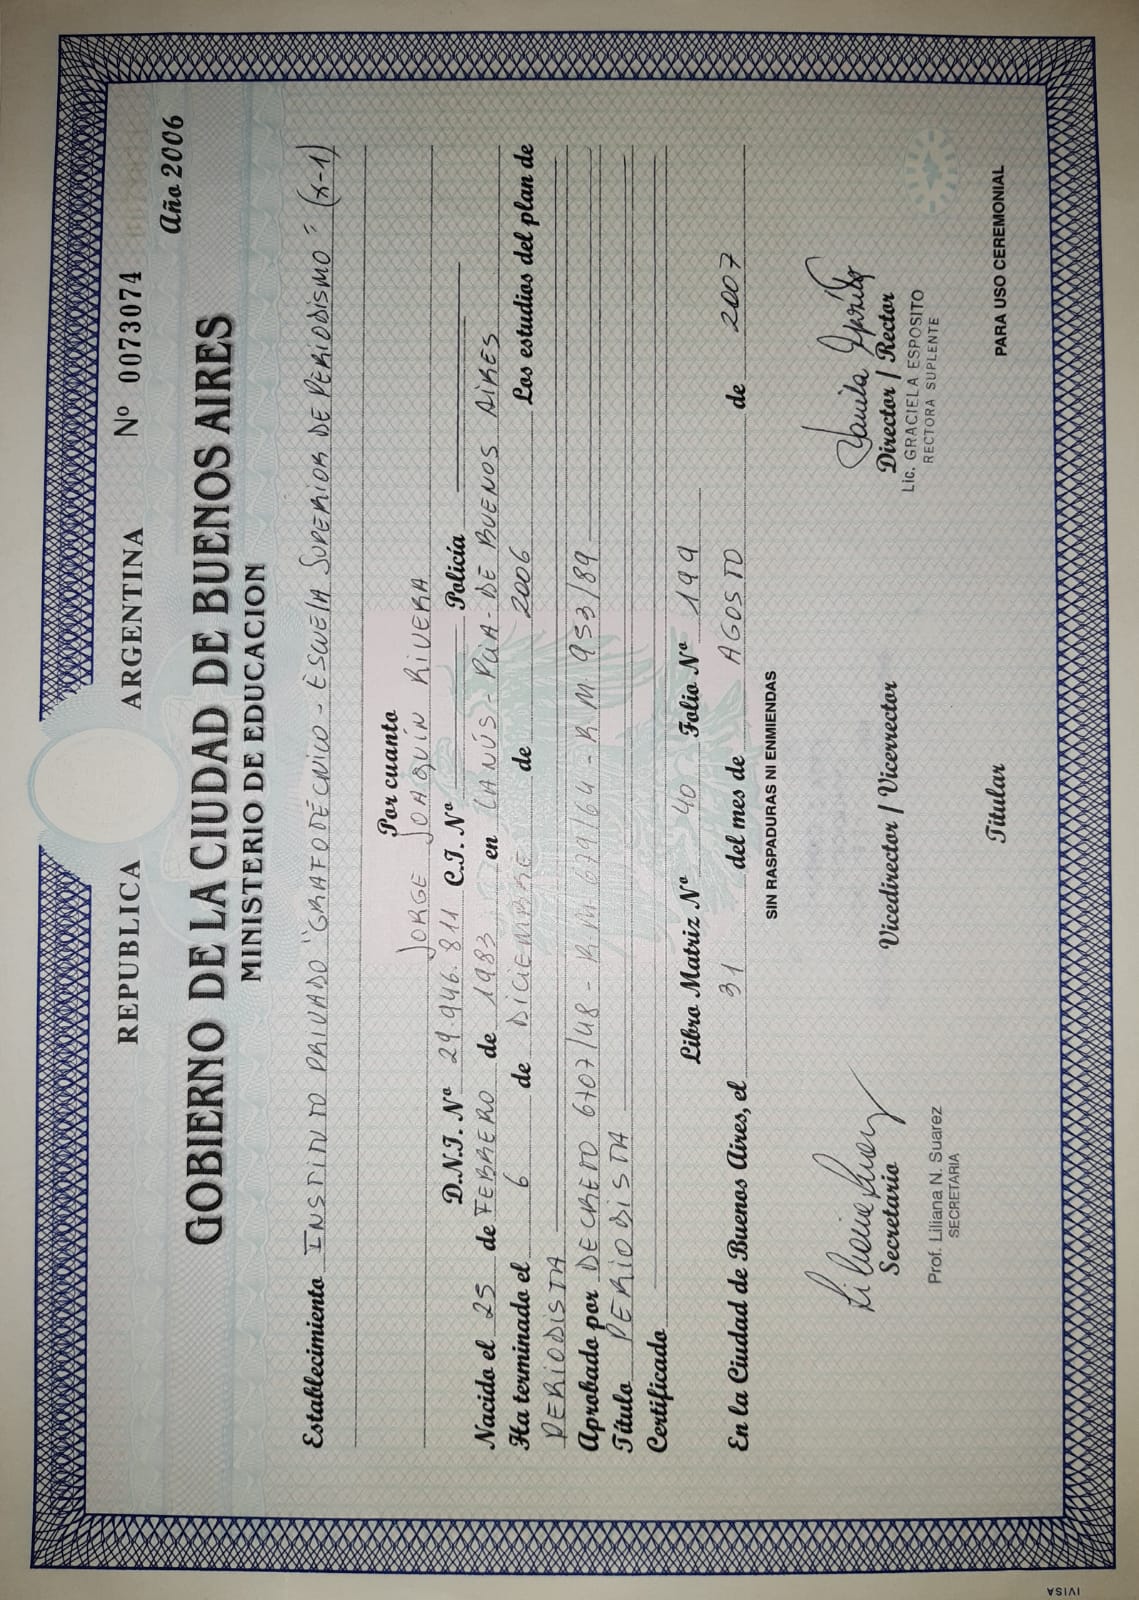 REPUBLICA ARGENTINA Nº 0073074
Año 2006
GOBIERNO DE LA CIUDAD DE BUENOS AIRES
MINISTERIO DE EDUCACION
Establecimiento INSTITUTO PRIVADO "GRAFOTÉCNICO - ESCUELA SUPERIOR DE PERIODISMO" (X-1)
Por cuanto
JORGE JOAQUÍN RIVERA
D.N.I. Nº 29.946.811 C.I. Nº Policía
Nacido el 25 de FEBRERO de 1983 en LANÚS - PCIA - DE BUENOS AIRES
Ha terminado el 6 de DICIEMBRE de 2006 Los estudios del plan de
PERIODISTA
Aprobado por DECRETO 6707/48 - R.M. 679/64 - R.M. 953/89
Título PERIODISTA
Certificado
Libro Matriz Nº 40 Folio Nº 199
En la Ciudad de Buenos Aires, el 31 del mes de AGOSTO de 2007
SIN RASPADURAS NI ENMIENDAS
Secretario Vicedirector / Vicerrector Director / Rector
Prof. Liliana N. Suarez
SECRETARIA
Lic. GRACIELA ESPOSITO
RECTORA SUPLENTE
Titular
PARA USO CEREMONIAL
IVISA